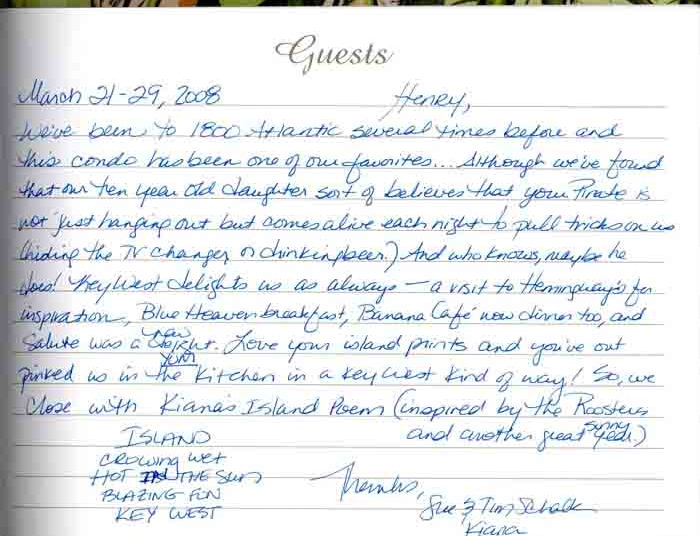 Guests
March 21-29, 2008 Henry,
We've been to 1800 Atlantic several times before and
this condo has been one of our favorites... Although we've found
that our ten year old daughter sort of believes that your Pirate is
not just hanging out but comes alive each night to pull tricks on us
(hiding the TV changer or drinking beer.) And who knows, maybe he
does! Key West delights us as always — a visit to Hemingway's for
inspiration, Blue Heaven breakfast, Banana Café now dinner too, and
Salute was a new delight. Love your island prints and you've out
pinked us in the kitchen in a key west kind of way! So, we
close with Kiana's Island Poem (inspired by the Roosters
and another great sunny year.)
ISLAND
CROWING WET
HOT THE SUN
BLAZING FUN
KEY WEST
Thanks,
Sue & Tim Schalk
Kiana